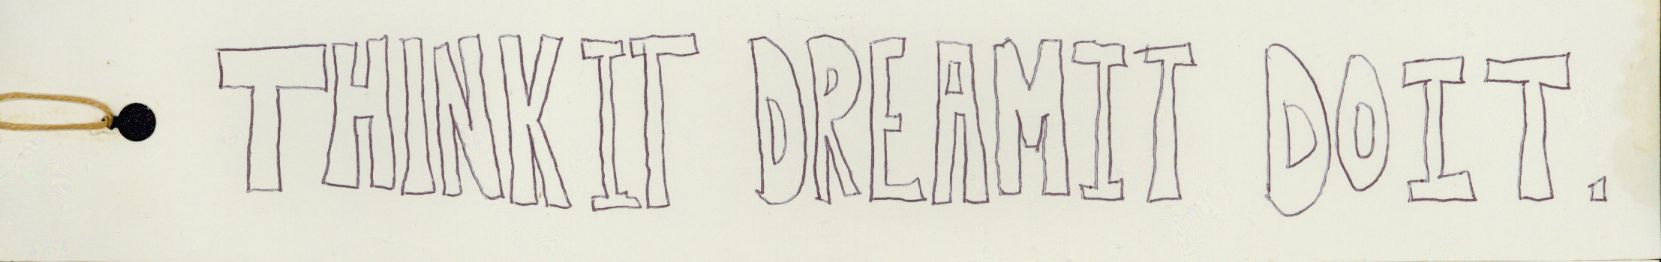 THINK IT DREAM IT DO IT.